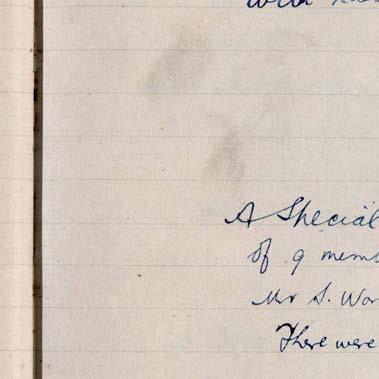 with
A Special
of 9 memb
Mr S. War
There were